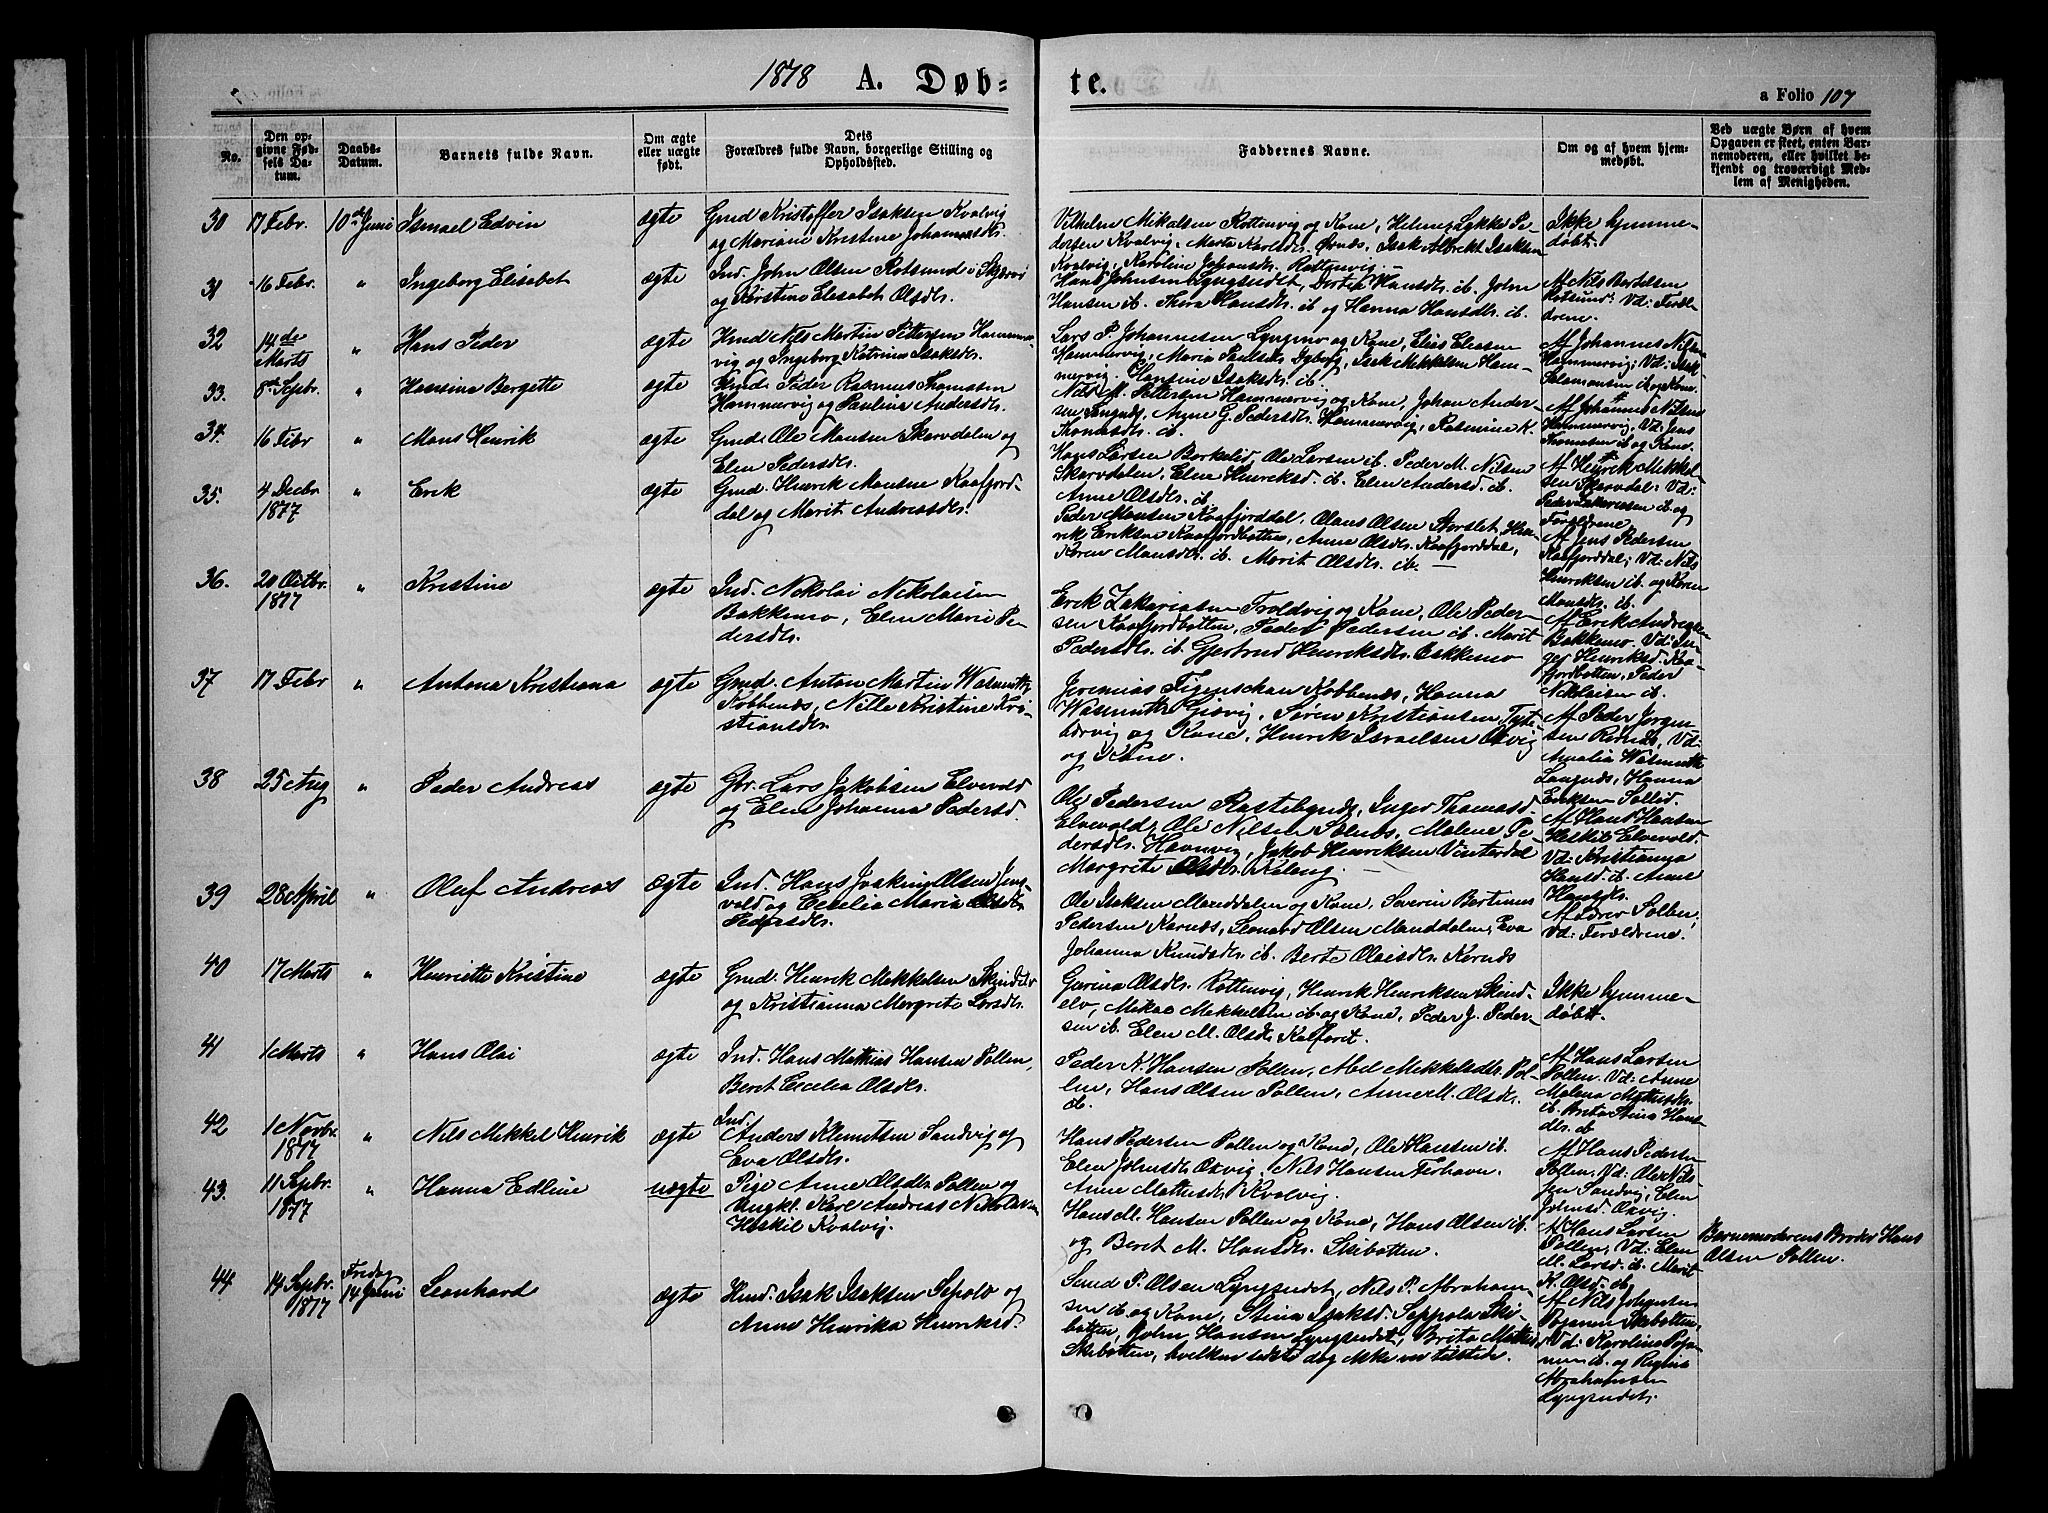 1878 A. Døb- te.
a Folio 107
No.
Den op-
givne Fød-
sels Da-
tum.
Daabs-
Datum.
Barnets fulde Navn.
Om ægte
eller uægte
født.
Dets
Forældres fulde Navn, borgerlige Stilling og
Opholdssted.
Faddernes Navne.
Om og af hvem hjem-
medøbt.
Ved uægte Børn af hvem
Opgaven er skeet, enten Bar-
nemoderen, eller hvilket be-
kjendt og troværdigt Med-
lem af Menigheden.
30 17 Febr. 10de Juni Ismael Edvin ægte Gmd Kristoffer Isaksen Kvalvig
og Mariane Kristine Johannesdr.
Vilhelm Mikalsen Rottenvig og Kone, Helene Lykke Pe-
dersen Kvalvig, Marta Karlsdr. Ørnæs, Isak Albrekt Isaksen
Kvalvig, Karoline Johansdr. Rottenvig.
Ikke hjemme-
døbt.
31 16 Febr. " Ingeborg Elisabet ægte Ind. John Olsen Rotsund i Skjervø
og Kirstine Elisabet Olsdr.
Hans Johnsen Lyngseidet, Dortea Hansdr. ib. John
Hansen ib. Thora Hansdr. ib og Hanna Hansdr. ib.
Af Nils Bertelsen
Rotsund. Vd: Foræl-
drene.
32 14de
Marts " Hans Peder ægte Hmd Nils Martin Pettersen Hammer-
vig og Ingeborg Katrine Isaksdr.
Lars P. Johannesen Lyngmo og Kone, Elias Eliasen
Hammervig, Maria Paulsdr. Dyberg, Isak Mekkelsen Ham-
mervig. Hansine Isaksdr. ib.
Af Johannes Nilsen
Hammervig; Vd: Isak
Salamonsen ib og Kone.
33. 8de Sepbr. " Hansina Bergette ægte Hmd. Peder Rasmus Thomasen
Hammervig og Paulina Andersdr.
Nils M. Pettersen Hammervig og Kone, Johan Ander-
sen Langnæs, Anne G. Pedersdr. Hammervig, Rasmine K.
Thomasdr. ib.
Af Johannes Nilsen
Hammervig, Vd: Jens
Thomasen ib og Kone.
34. 16 Febr " Mons Henrik ægte Gmd. Ole Monsen Skarvdalen og
Elen Pedersdr.
Hans Larsen Borkelid, Ole Larsen ib. Peder M. Nilsen
Skarvdalen, Elene Henriksd. ib. Elen Andersd. ib.
Anne Olsdr. ib.
Af Henrik Mekkel-
sen Skarvdal. Vd:
Peder Zakariassen ib og
Forældrene.
35. 4 Decbr
1877 " Erik ægte Gmd. Henrik Monsen Kaafjord-
dal og Marit Andreasdr.
Peder Monsen Kaafjorddal, Olaus Olsen Storslet, Hen-
rik Eriksen Kaafjordbotten, Anne Olsdr. Kaafjorddal,
Karen Monsdr. ib. Marit Olsdr. ib.
Af Jens Pedersen
Kaafjorddal; Vd: Nils
Henriksen ib. og Karen
Monsdr. ib.
36. 20 Octbr.
1877 " Kristine ægte Ind. Nikolai Nikolaisen
Bakkemo, Elen Marie Pe-
dersdr.
Erik Zakariasen Troldvig og Kone, Ole Peder-
sen Kaafjordbotten, Peder Pedersen ib. Marit
Pedersdr. ib. Gjertrud Henriksdr. Bakkemo
Af Erik Andreasen
Bakkemo. Vd: In-
ger Henriksd. Kaa-
fjordbotten, Peder
Nikolaisen ib.
37 17 Febr " Antona Kristiana ægte Gmd. Anton Martin Wasmuth
Kobbenæs, Nille Kristine Kri-
stiansdr.
Jeremias Figenschau Kobbenæs, Hanna
Wasmuth Gjøvig, Søren Kristiansen Tyt-
tebærvig og Kone, Henrik Israelsen Oxvig
og Kone.
Af Peder Jørgen-
sen Rørnæs, Vd:
Amalia Wasmuth
Langnæs, Hanna
Eriksen Sollid.
38 25 Aug " Peder Andreas ægte Gbr. Lars Jakobsen Elvevold
og Elen Johanna Pedersd.
Ole Pedersen Rastebynæs, Inger Thomasd.
Elvevold, Ole Nilsen Solnæs, Malene Pe-
dersdr. Havnvig, Jakob Henriksen Vinterdal
Margrete Olsdr. Koleng.
Af Hans Hansen
Heskil Elvevold.
Vd: Kristianna
Hansd. ib. Anne
Hansdr.
39 28 April " Oluf Andreas ægte Ind. Hans Joakim Olsen Jens-
vold og Cecelia Maria Olsdr
Pedersdr.
Ole Isaksen Manddalen og Kone, Severin Bertinus
Pedersen Karnæs, Leonard Olsen Manddalen, Eva
Johanna Knudsdr. ib. Berte Olaisdr. Karnæs
Af Lærer Solberg;
Vd: Forældrene.
40 17 Marts " Henriette Kristine ægte Gmd. Henrik Mekkelsen Skindelv
og Kristianna Margrete Larsdr.
Gurina Olsdr. Rottenvig, Henrik Henriksen Skind-
elv, Mikal Mekkelsen ib og Kone, Peder J. Peder-
sen ib. Elen M. Olsdr. Kalfaret.
Ikke hjemme-
døbt.
41 1 Marts " Hans Olai ægte Ind. Hans Mathias Hansen Pollen,
Beret Cecelia Olsdr.
Peder N. Hansen Pollen, Abel Mekkelsdr. Pol-
len, Hans Olsen Pollen, Anne M. Olsdr.
ib.
Af Hans Larsen
Pollen. Vd: Anne
Malena Mathisdr.
ib. Brita Stina Hans-
dr. ib
42 1 Novbr.
1877 " Nils Mekkel Henrik ægte Ind.
Anders Klemetsen Sandvig og
Eva Olsdr.
Hans Pedersen Pollen og Kone, Ole Hansen ib.
Elen Johnsdr. Oxvig. Nils Hansen Forhavn.
Anne Mathisdr. Kvalvig.
Af Hans Pedersen
Pollen, Vd: Ole Nils-
sen Sandvig, Elen
Johnsd. Oxvig.
43. 11 Sepbr.
1877 " Hanna Edline uægte Pige Anne Olsdr. Pollen og
Ungkl. Karl Andreas Nikolaisen
Heskil Kvalvig.
Hans M. Hansen Pollen og Kone, Hans Olsen ib.
og Beret M. Hansdr. Skibotten.
Af Hans Larsen
Pollen, Vd: Elen
M. Larsd. ib. Marit
K. Olsd. ib.
Barnemoderens Broder Hans
Olsen Pollen.
44 14 Sepbr.
1877 Fredag
14 Juni Leonhard ægte Hmd. Isak Isaksen Sepola og
Anne Henrika Henriksd.
Smed P. Olsen Lyngseidet, Nils P. Abraham-
sen ib og Kone, Stina Isaksd. Seppola Ski-
botten, John Hansen Lyngseidet, Brita Mathisd
Skibotten, hvilken sidste dog ikke var tilstede.
Af Nils Johansen
Pojanen Skibotten,
Vd: Karoline Poja-
nen ib. og Regina
Abrahamsen
Lyngseidet.